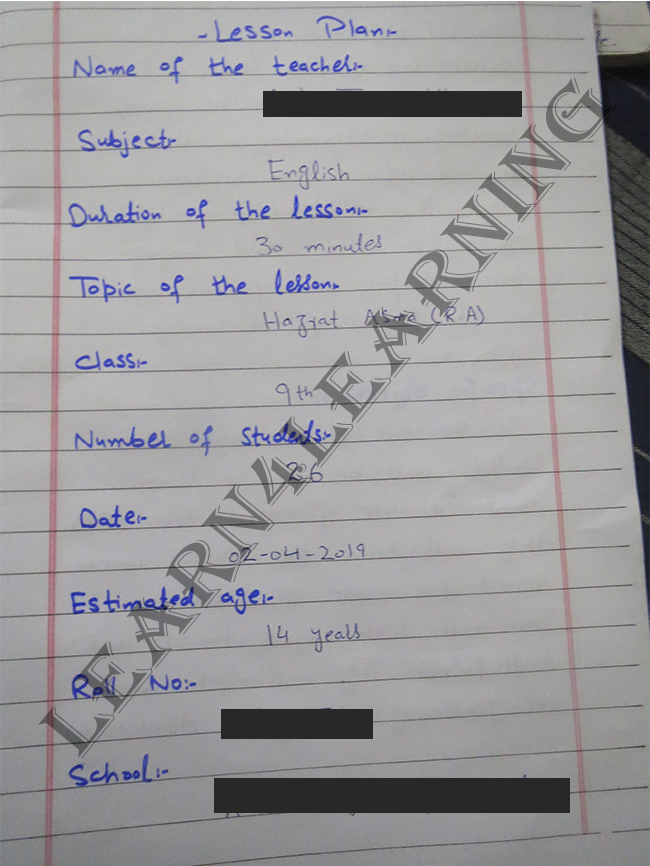 - Lesson Plan:-
Name of the teacher:-
Subject:-
English
Duration of the lesson:-
30 minutes
Topic of the lesson:-
Hazrat Asma (R.A)
Class:-
9th
Number of Students:-
26
Date:-
02-04-2019
Estimated age:-
14 years
Roll No:-
School:-
LEARN4LEARNING